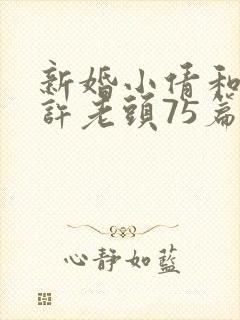 新婚小倩和
許老頭75篇
心靜如藍